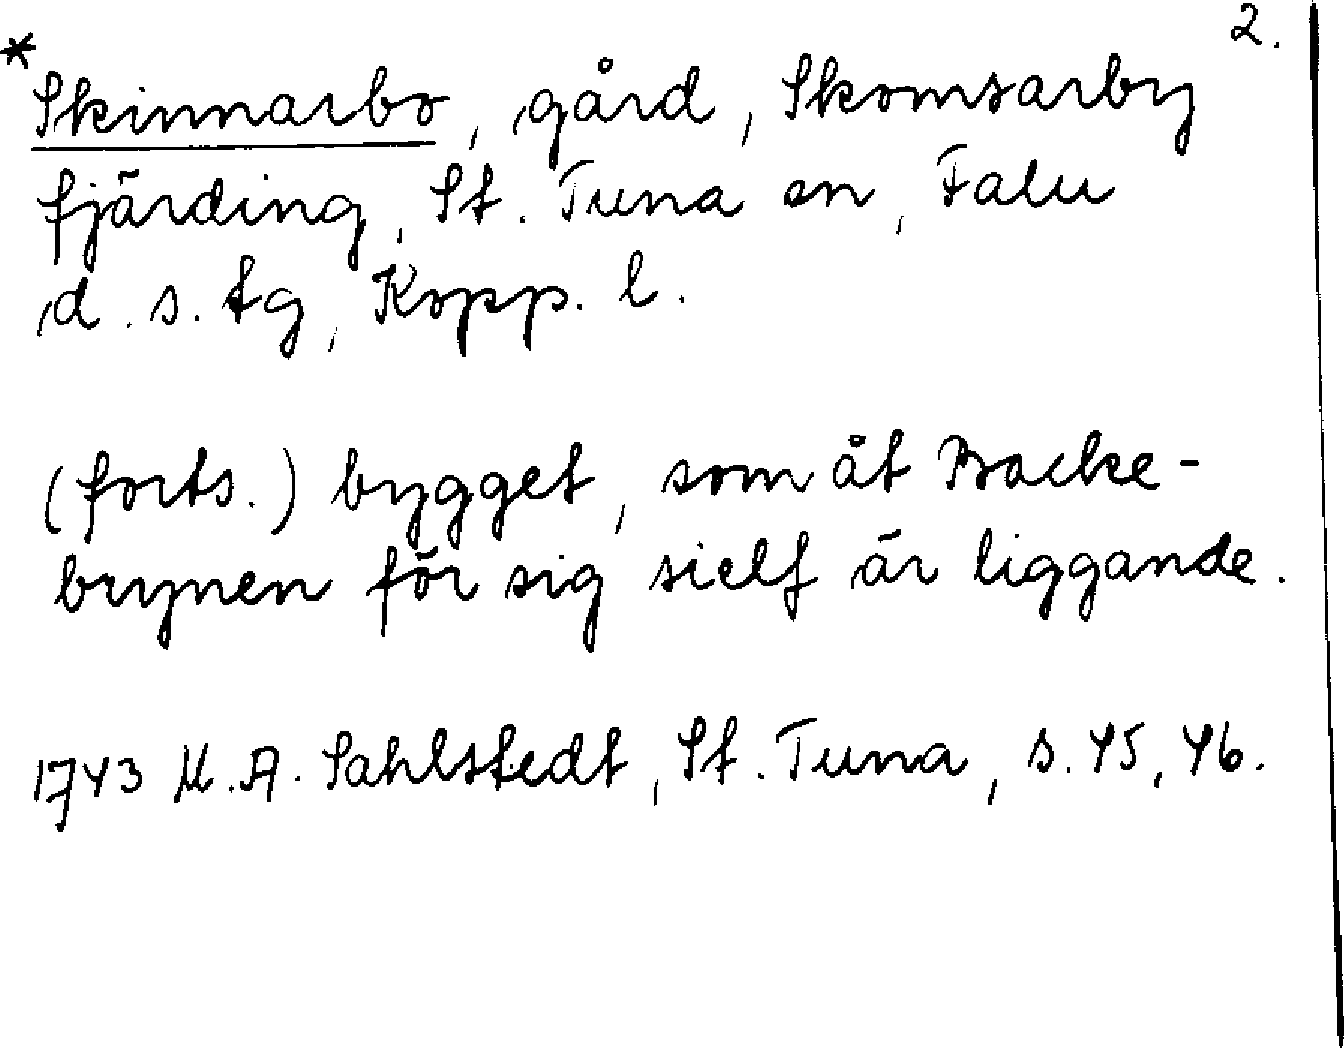 2.
* Skinnarbo, gård, Skomsarby
fjärding, St. Tuna sn, Falu
d. s. tg, Kopp. l.
(forts.) bygget, som åt Backe-
brynen för sig sielf är liggande.
1743 M. A. Sahlstedt, St. Tuna, s. 45, 46.